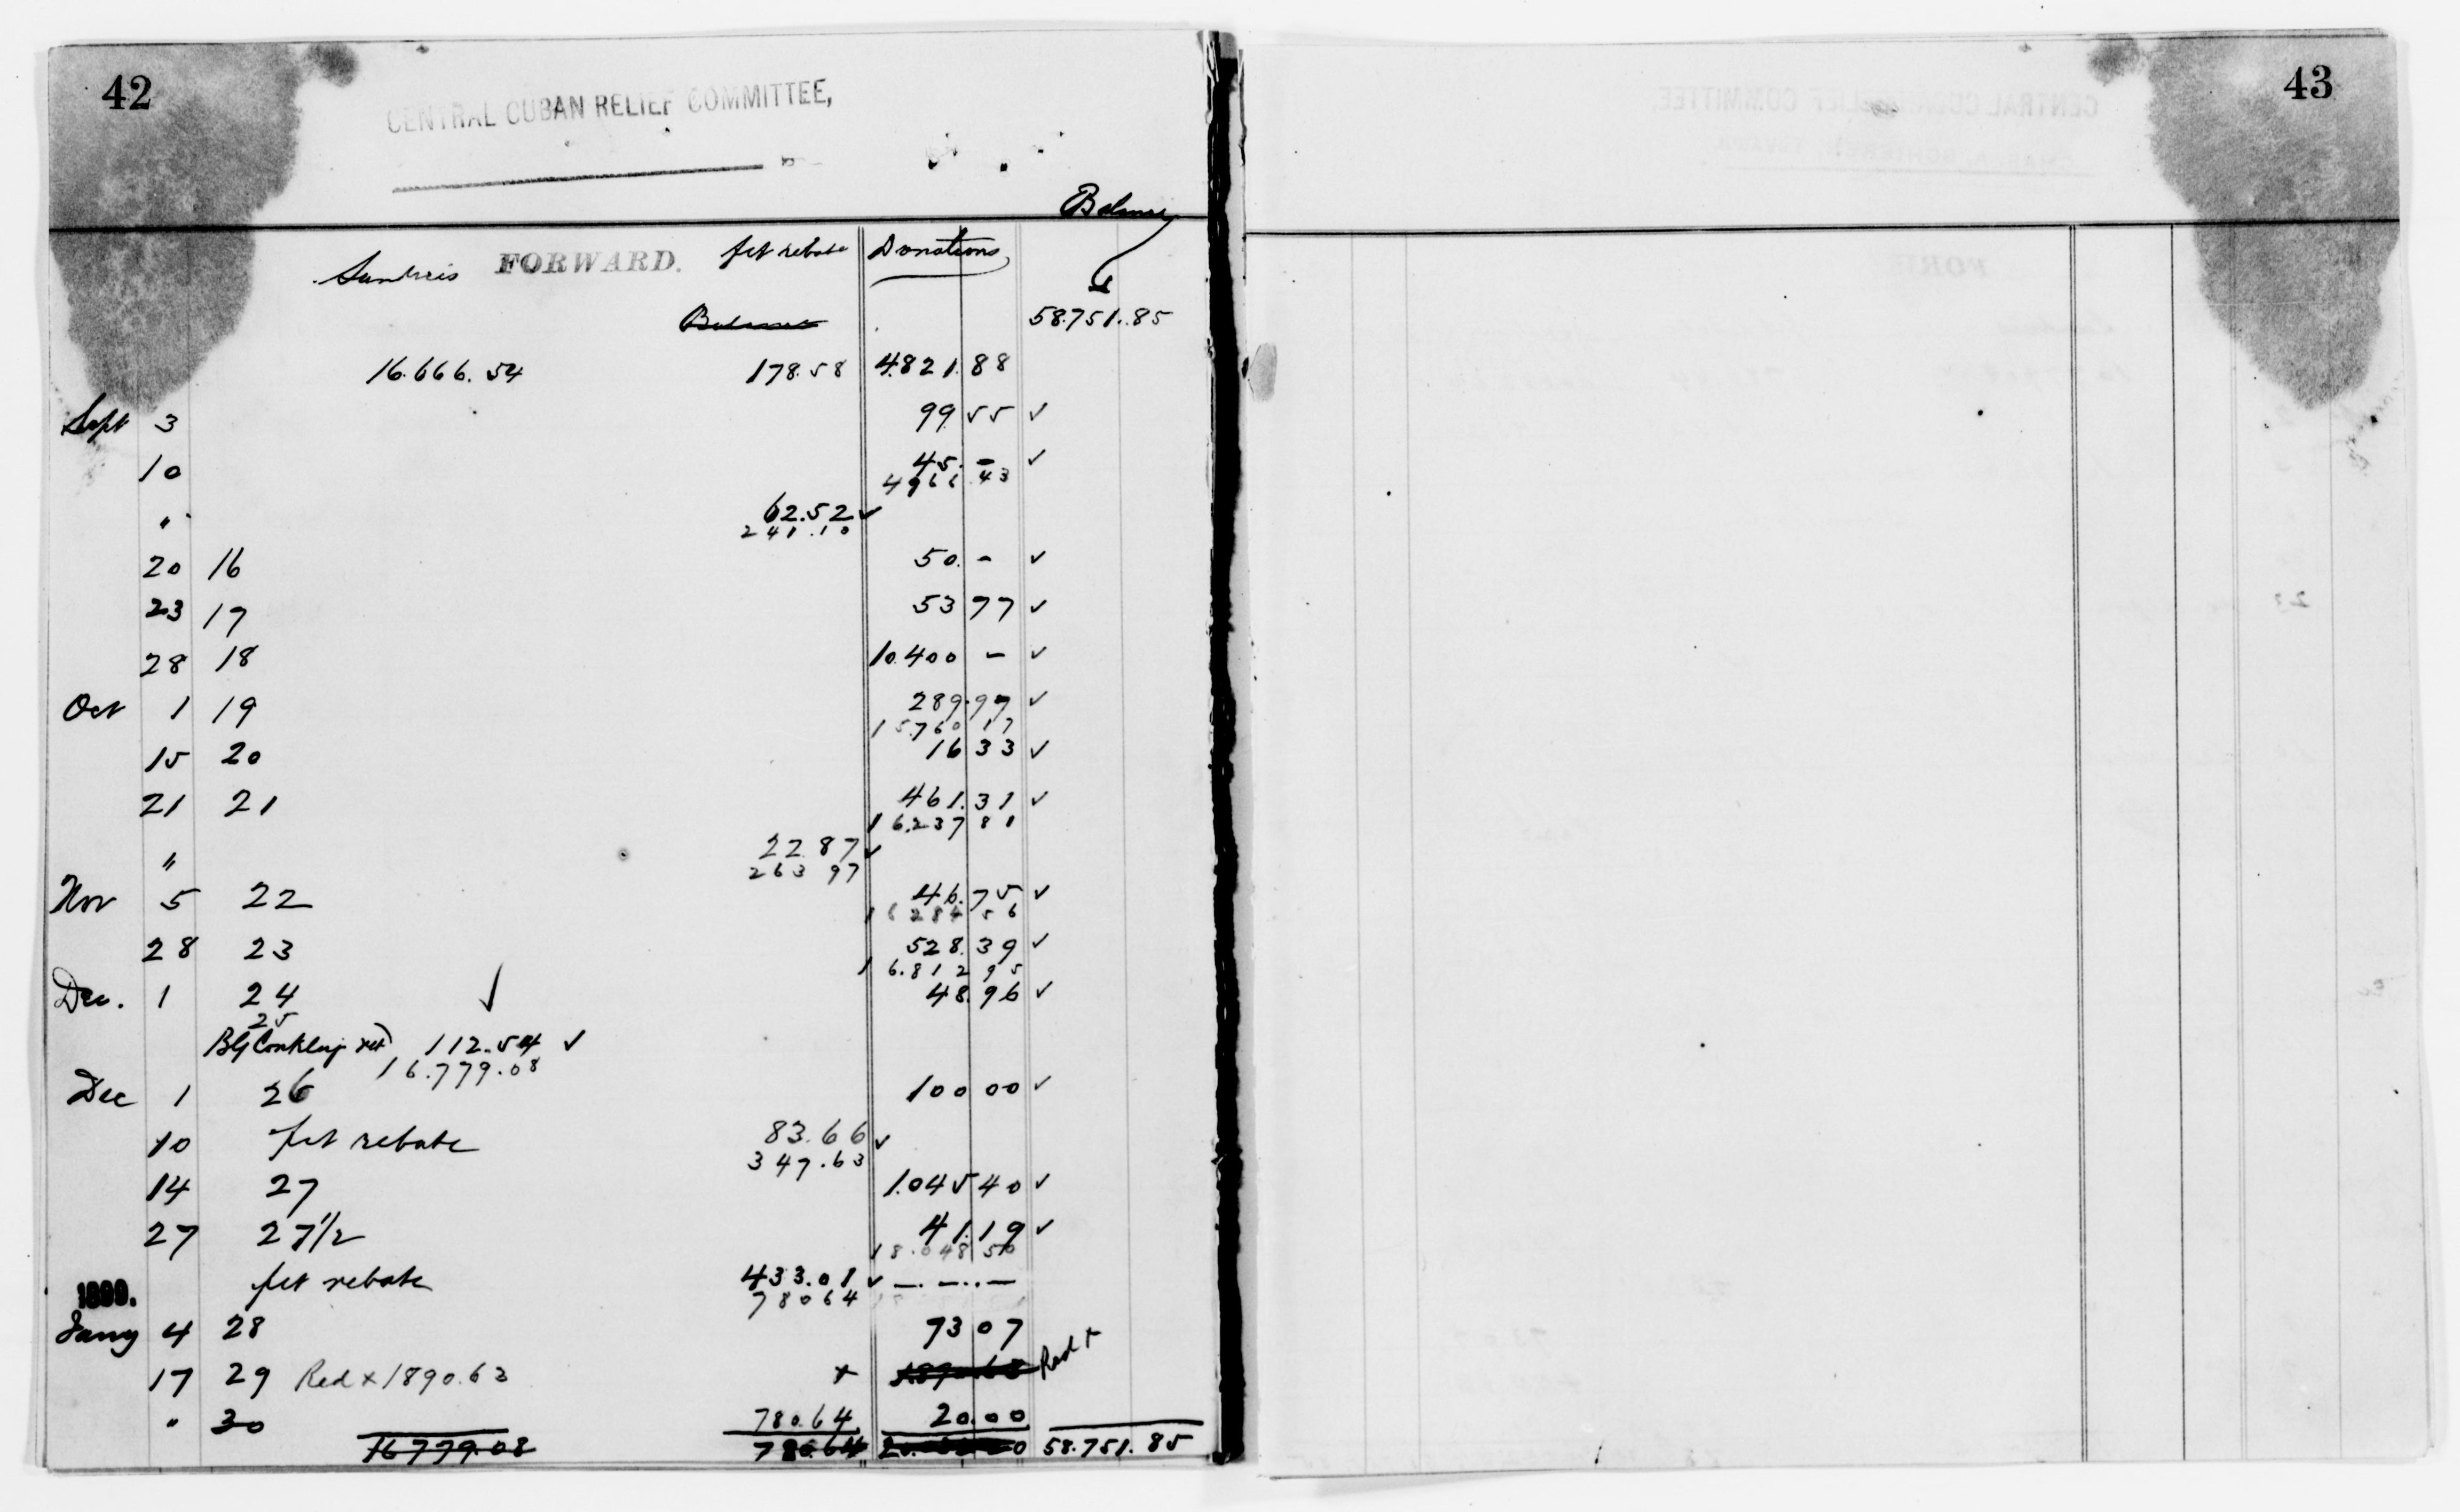 42
43
CENTRAL CUBAN RELIEF COMMITTEE,
Balance
Sundries FORWARD. frt rebate Donations
Balance 58.751.85
16.666.54 178.58 4.821.88
Sept 3 99 55 ✓
10 45. – ✓
4966.43
" 62.52 ✓
241.10
20 16 50. – ✓
23 17 53 77 ✓
28 18 10.400 – ✓
Oct 1 19 289.97 ✓
15.760 17
15 20 16 33 ✓
21 21 461.31 ✓
16.237 81
" 22 87 ✓
263 97
Nov 5 22 46.75 ✓
16284 56
28 23 528.39 ✓
16.812 95
Dec. 1 24 ✓ 48.96 ✓
25
BG Conkling 112.54 ✓
16.779.08
Dec 1 26 100 00 ✓
10 frt rebate 83.66 ✓
347.63
14 27 1.045 40 ✓
27 27 1/2 41.19 ✓
18.048 50
frt rebate 433.01 ✓ –. –.. –
780 64
1899.
Jany 4 28 73 07
17 29 Red x 1890.63 x Red x
" 30 780.64 20.00
16779.08 780.64 58.751.85